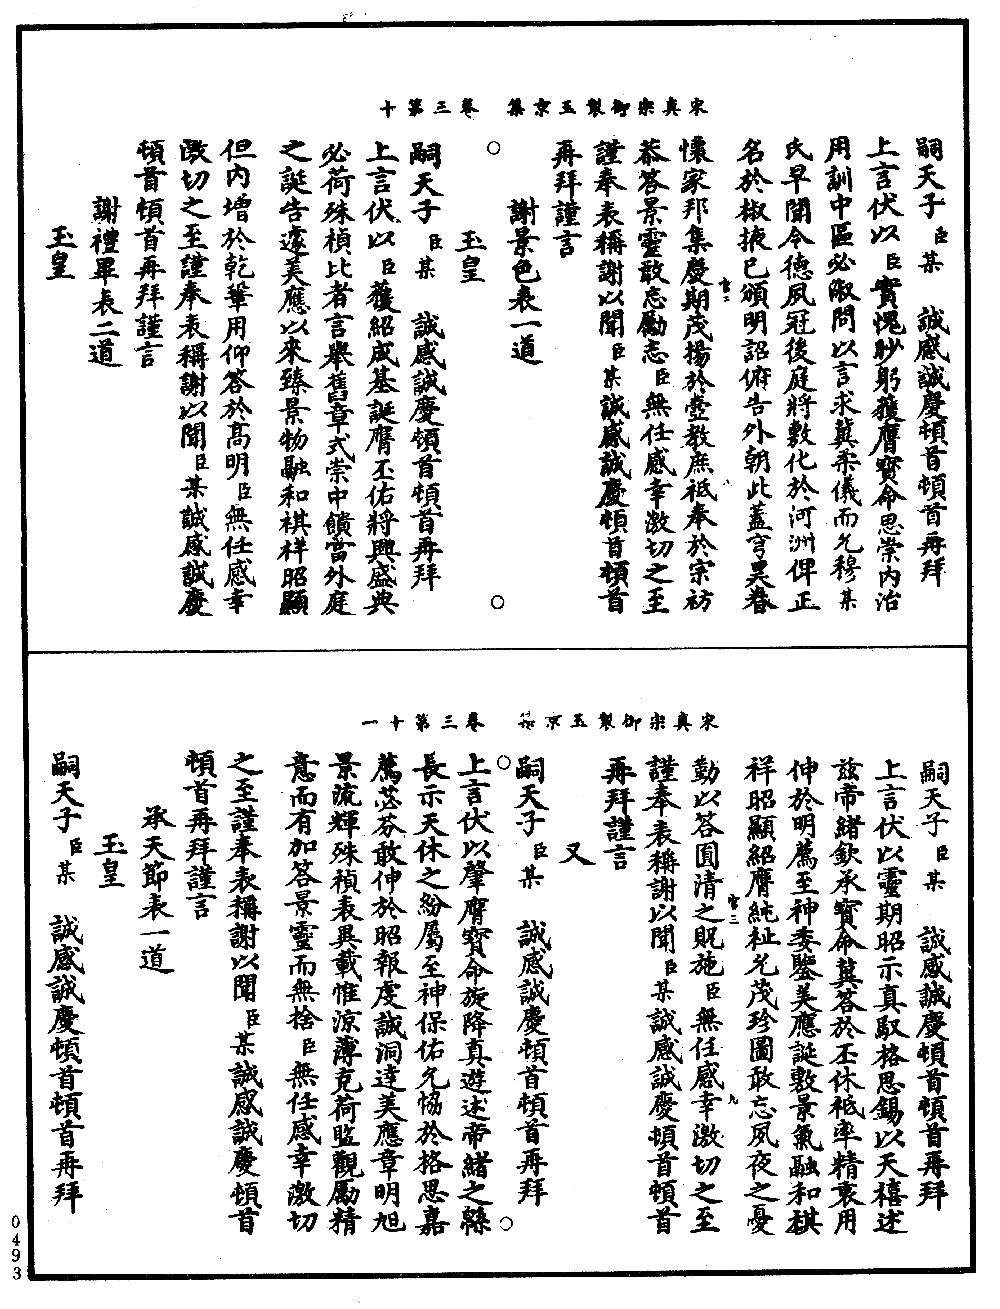 宋真宗御製玉京集　卷三第十
嗣天子臣某　誠感誠慶頓首頓首再拜
上言伏以臣實愧眇躬獲膺寳命思崇内治
用訓中區必淑問以言求冀柔儀而允穆某
氏早聞令德夙冠後庭將敷化於河洲俾正
名於椒掖已頒明詔俯告外朝此蓋穹昊眷
懷家邦集慶期茂揚於壼教庶祗奉於宗祊
恭答景靈敢忘勵志臣無任感幸激切之至
謹奉表稱謝以聞臣某誠感誠慶頓首頓首
再拜謹言
謝景色表一道
玉皇
嗣天子臣某　誠感誠慶頓首頓首再拜
上言伏以臣獲紹成基誕膺丕佑將興盛典
必荷殊禎比者言舉舊章式崇中饋當外庭
之誕告遽美應以來臻景物融和祺祥昭顯
但内增於乾鞏用仰答於高明臣無任感幸
激切之至謹奉表稱謝以聞臣某誠感誠慶
頓首頓首再拜謹言
謝禮畢表二道
玉皇
宋真宗御製玉京集　卷三第十一
嗣天子臣某　誠感誠慶頓首頓首再拜
上言伏以靈期昭示真馭格思錫以天禧述
兹帝緒欽承寳命冀答於丕休祗率精衷用
伸於明薦至神委鑒美應誕敷景氣融和祺
祥昭顯紹膺純祉允茂珍圖敢忘夙夜之憂
勤以答圓清之貺施臣無任感幸激切之至
謹奉表稱謝以聞臣某誠感誠慶頓首頓首
再拜謹言
又
嗣天子臣某　誠感誠慶頓首頓首再拜
上言伏以肇膺寳命旋降真遊述帝緒之緜
長示天休之紛屬至神保佑允恊於格思嘉
薦苾芬敢伸於昭報虔誠洞達美應章明旭
景流輝殊禎表異載惟涼薄克荷監觀勵精
意而有加答景靈而無捨臣無任感幸激切
之至謹奉表稱謝以聞臣某誠感誠慶頓首
頓首再拜謹言
承天節表一道
玉皇
嗣天子臣某　誠感誠慶頓首頓首再拜
0493